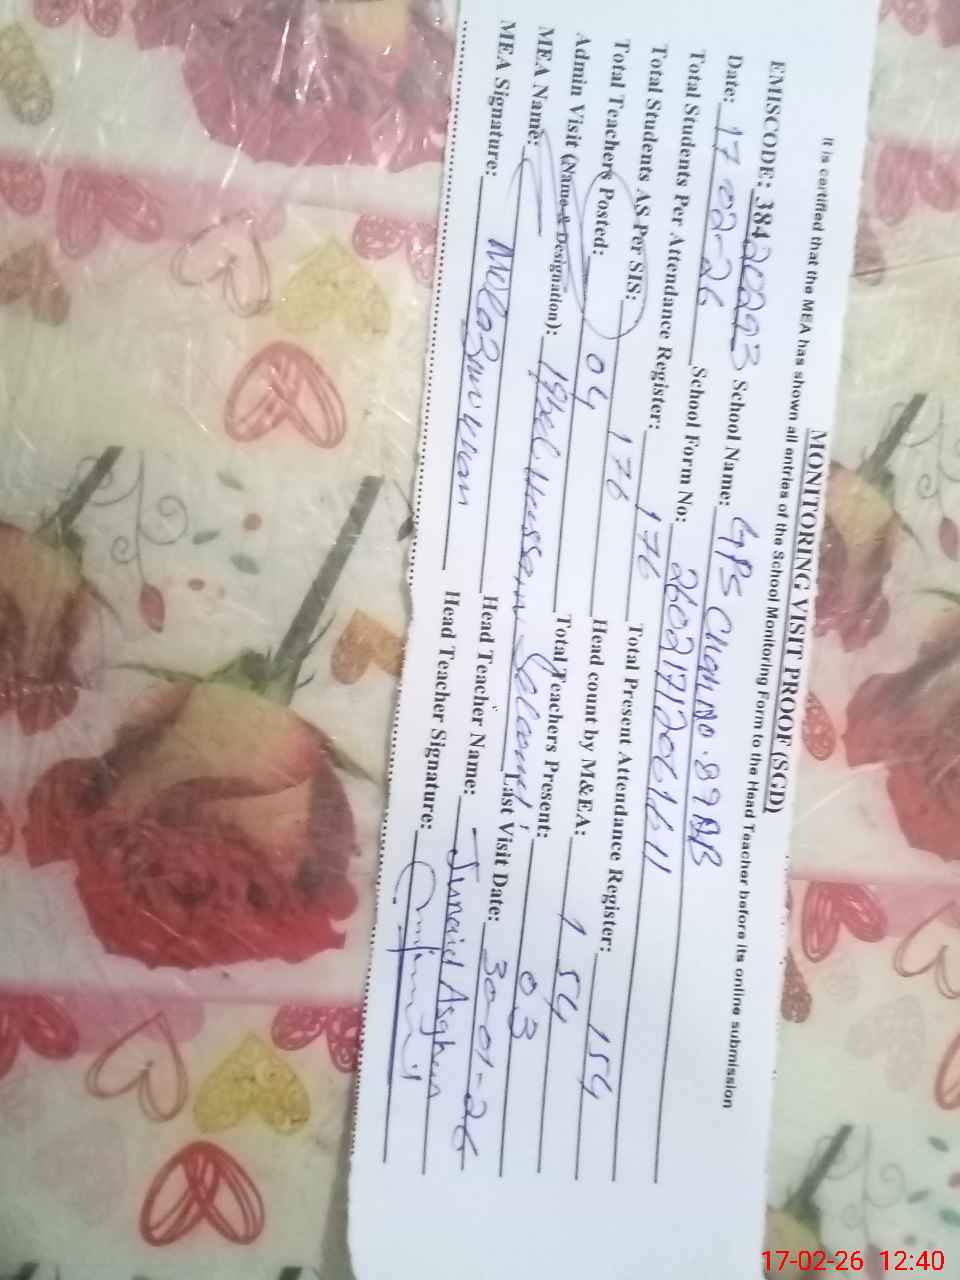 MONITORING VISIT PROOF (SGD)
It is certified that the MEA has shown all entries of the School Monitoring Form to the Head Teacher before its online submission
EMISCODE: 38420293 School Name: GPS Chak No. 89 AB
Date: 17-02-26 School Form No: 26021712061611
Total Students Per Attendance Register: 176 Total Present Attendance Register: 154
Total Students AS Per SIS: 176 Head count by M&EA: 154
Total Teachers Posted: 04 Total Teachers Present: 03
Admin Visit (Name & Designation): Hussain Last Visit Date: 30-01-26
MEA Name: Head Teacher Name: Junaid Asghar
MEA Signature: Head Teacher Signature:
17-02-26 12:40